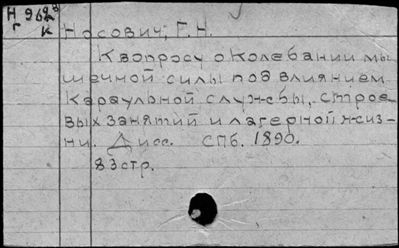 Н 962
Г К
Носович, Г. Н.
К вопросу о колебании мы
шечной силы под влиянием
караульной службы, строе
вых занятий и лагерной жиз-
ни. Дисс. СПб. 1890.
83 стр.